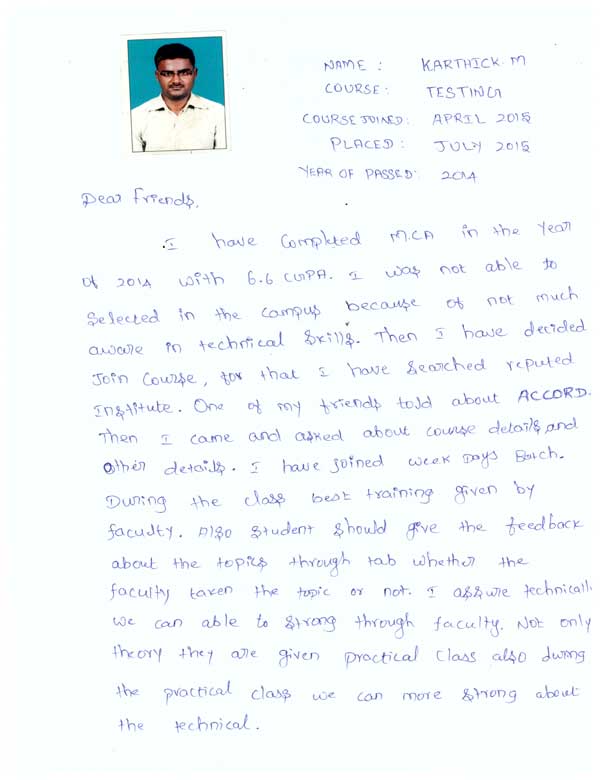 NAME : KARTHICK. M
COURSE : TESTING
COURSE JOINED : APRIL 2015
PLACED : JULY 2015
YEAR OF PASSED : 2014
Dear friends,
I have completed M.CA in the year
of 2014 with 6.6 CGPA. I was not able to
selected in the campus because of not much
aware in technical skills. Then I have decided
Join Course, for that I have searched reputed
Institute. One of my friends told about ACCORD.
Then I came and asked about course details and
other details. I have joined week Days Batch.
During the class best training given by
faculty. Also student should give the feedback
about the topics through tab whether the
faculty taken the topic or not. I assure technicall
we can able to strong through faculty. Not only
theory they are given practical class also during
the practical class we can more strong about
the technical.